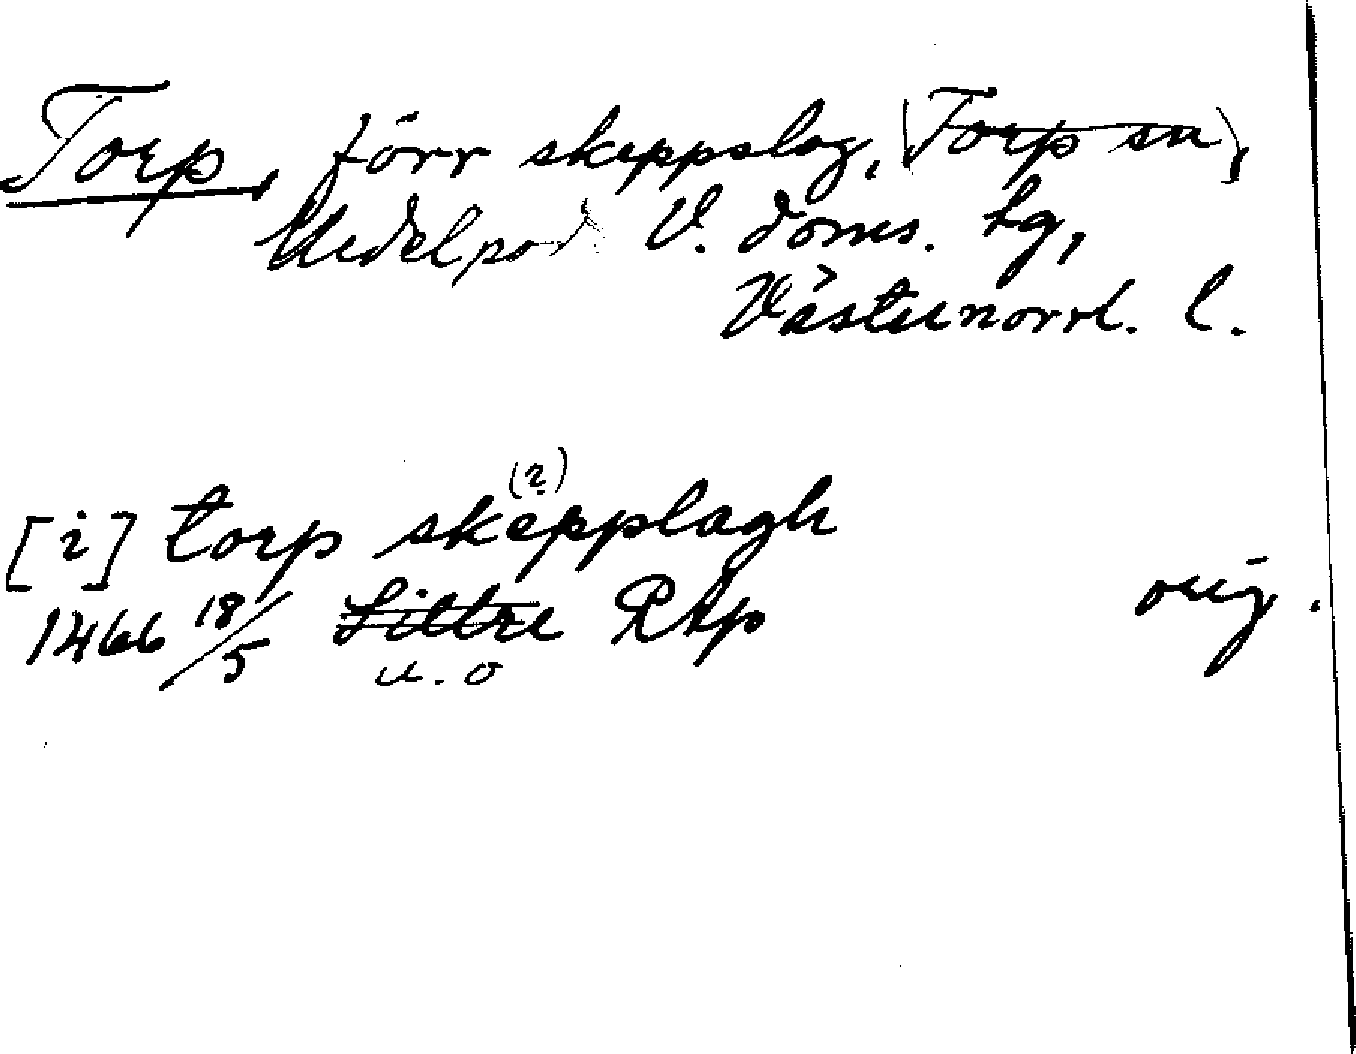 Torp, förr skeppslag, (Torp sn),
Medelpad V. doms. tg,
Västernorrl. l.
(?)
[i] torp skepplagh
1466 18/5 Sittre RAp orig.
u. o